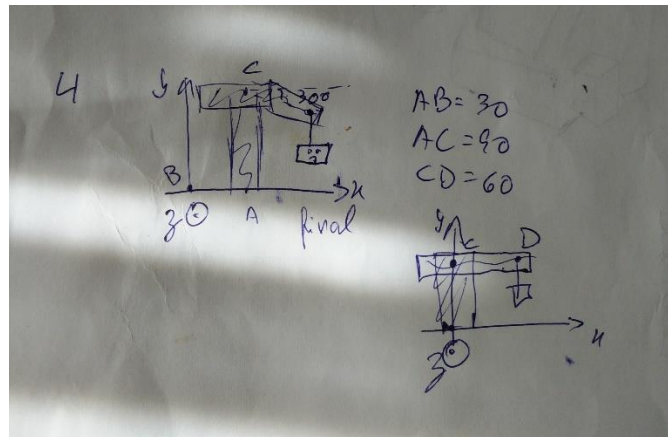 4
y
C
30°
B
x
z
A
final
AB=30
AC=90
CD=60
y
C
D
x
z